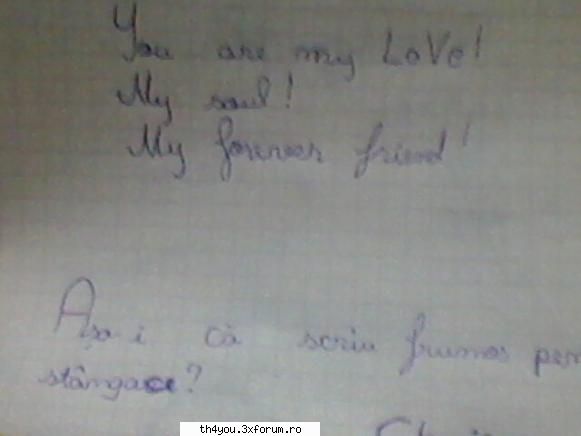 You are my LoVe!
My soul!
My forever friend!
Așa-i că scriu frumos
stângace?
th4you.3xforum.ro